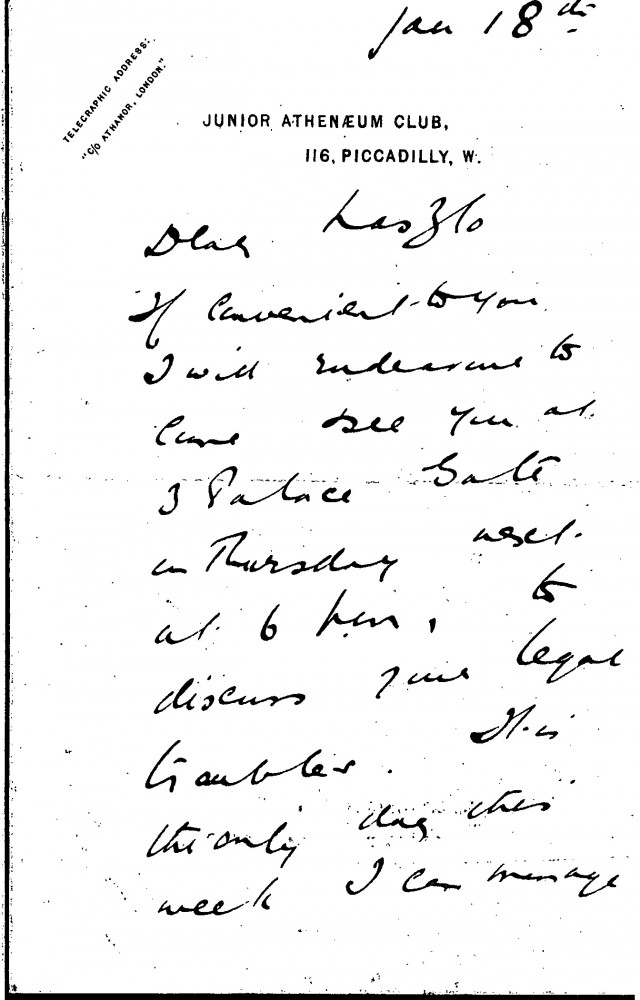 Jan 18th
TELEGRAPHIC ADDRESS:
"C/O ATHANOR, LONDON."
JUNIOR ATHENÆUM CLUB,
116, PICCADILLY, W.
Dear Laszlo
If convenient to you
I will endeavour to
come & see you at
3 Palace Gate
on Thursday next
at 6 p.m., to
discuss your legal
troubles. It is
the only day this
week I can manage